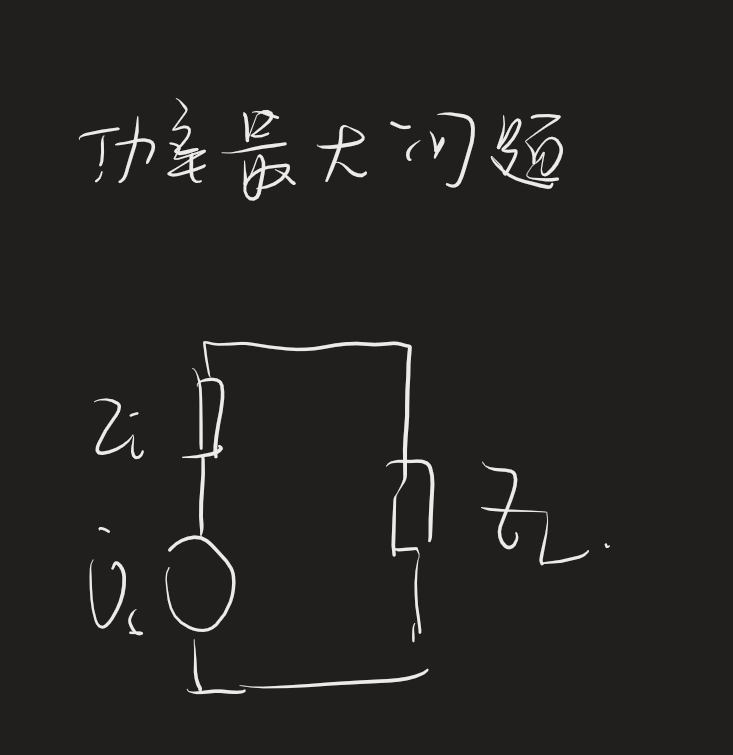 功率最大问题
Zi
U̇s
ZL.